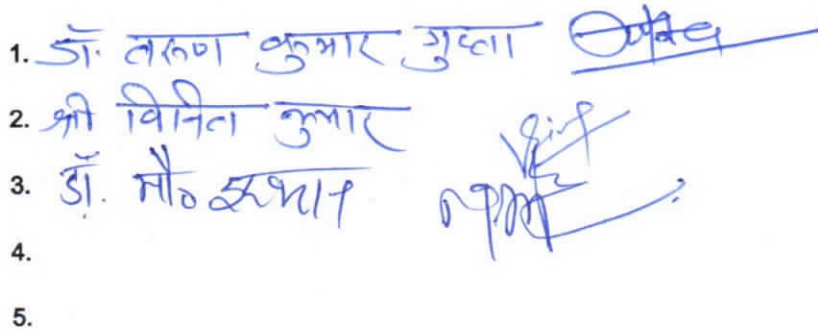 1. डॉ. तरूण कुमार गुप्ता
2. श्री विनित कुमार
3. डॉ. मौ०
4.
5.